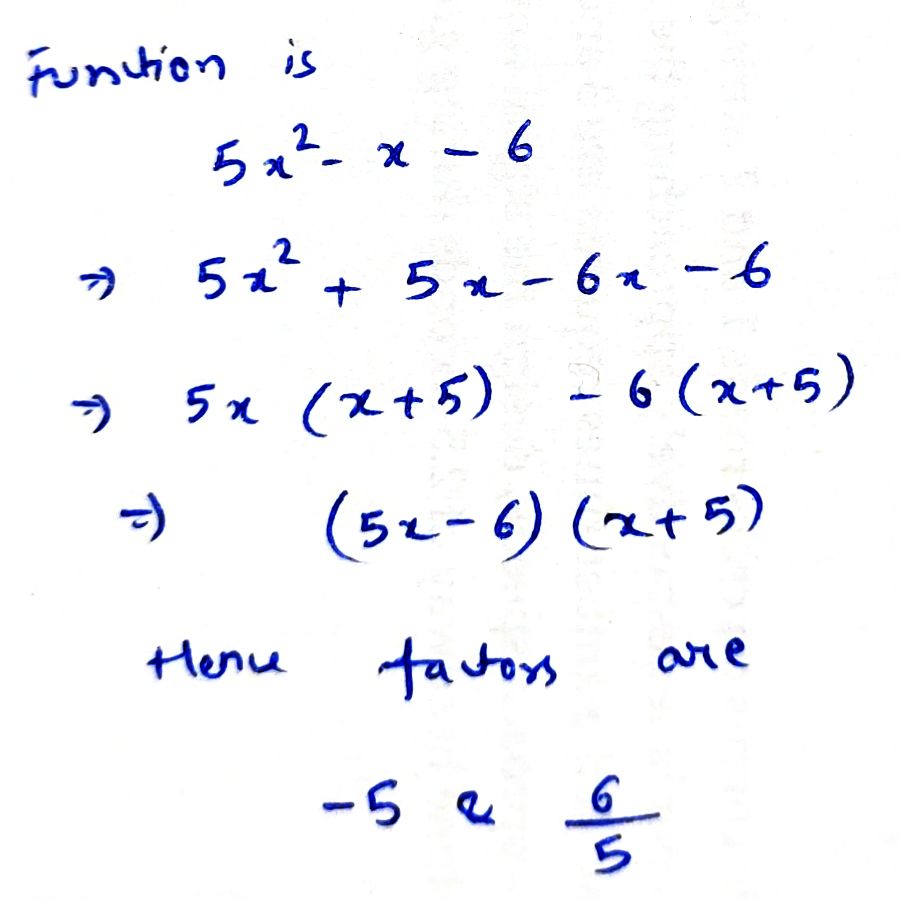 Function is
5x² - x - 6
⇒ 5x² + 5x - 6x - 6
⇒ 5x (x+5) - 6 (x+5)
⇒ (5x - 6) (x+5)
Hence factors are
-5 & 6/5